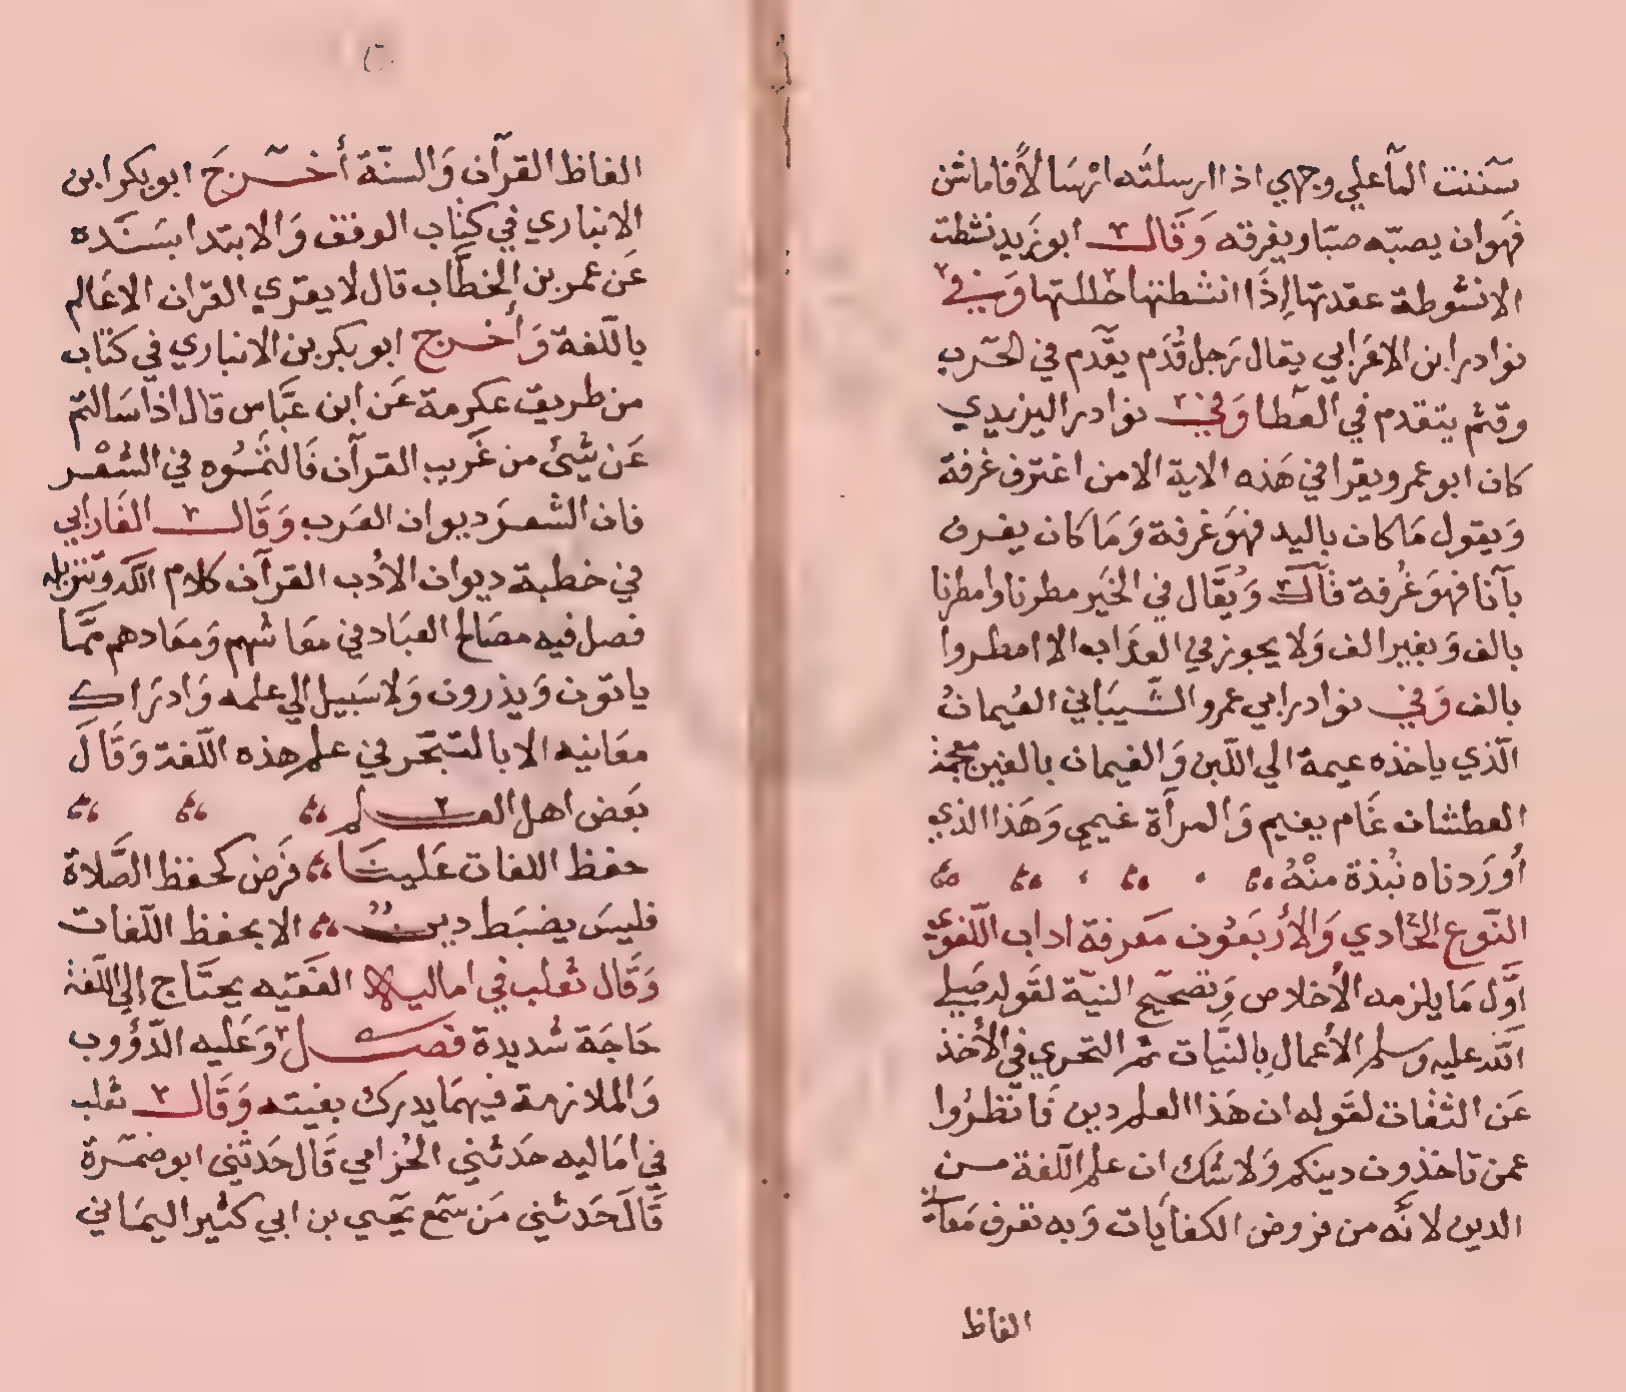 سننت الماعلي وجهي اذا ارسلته ارسالا فاما شن
فهو ان يصبه صبا ويفرقه وقال ابو زيد نشطت
الانشوطة عقدتها اذا انشطتها حللتها وفي
نوادر ابن الاعرابي يقال رجل قدم يقدم في الحرب
وقثم يتقدم في العطا وفي نوادر اليزيدي
كان ابو عمرو يقرا في هذه الاية الا من اغترف غرفة
ويقول ما كان باليد فهو غرفة وما كان يغرف
بآنا فهو غرفة قال ويقال في الخير مطرنا وامطرنا
بالف وبغير الف ولا يجوز في العذاب الا امطروا
بالف وفي نوادر ابي عمرو الشيباني العيمان
الذي ياخذه عيمة الي اللبن والغيمان بالغين معجمة
العطشان غام يغيم والمرأة غيمي وهذا الذي
أوردناه نبذة منه
النوع الحادي والأربعون معرفة اداب اللغوي
اول ما يلزمه الأخلاص وتصحيح النية لقوله صلي
الله عليه وسلم الأعمال بالنيات ثم التحري في الأخذ
عن الثقات لقوله ان هذا العلم دين فانظروا
عمن تاخذون دينكم ولا شك ان علم اللغة من
الدين لانه من فروض الكفايات وبه تعرف معاني
الفاظ
الفاظ القرآن والسنة أخرج ابو بكر ابن
الانباري في كتاب الوقف والابتدا بسنده
عن عمر بن الخطاب قال لا يقري القران الا عالم
باللغة وأخرج ابو بكر بن الانباري في كتاب
من طريق عكرمة عن ابن عباس قال اذا سالتم
عن شيئ من غريب القرآن فالتمسوه في الشعر
فان الشعر ديوان العرب وقال الفارابي
في خطبة ديوان الأدب القرآن كلام الله وتنزيله
فصل فيه مصالح العباد في معاشهم ومعادهم مما
ياتون ويذرون ولا سبيل الي علمه وادراك
معانيه الا بالتبحر في علم هذه اللغة وقال
بعض اهل العلم
حفظ اللغات علينا فرض كحفظ الصلاة
فليس يضبط دين الا بحفظ اللغات
وقال ثعلب في اماليه الفقيه يحتاج إلي اللغة
حاجة شديدة فصل وعليه الدؤوب
والملازمة فبهما يدرك بغيته وقال ثعلب
في اماليه حدثني الحزامي قال حدثني ابو ضمرة
قال حدثني من سمع يحيي بن ابي كثير اليماني